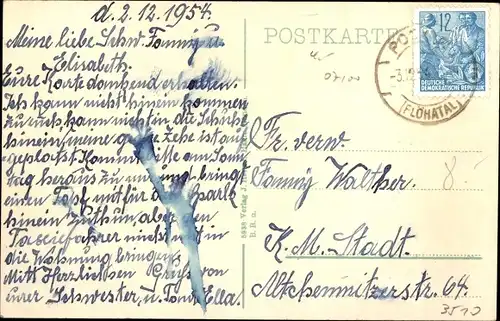 d. 2.12.1954.
Meine liebe Schw. Fanny u.
Elisabeth.
Eure Karte dankend erhalten.
Ich kann nicht hinein kommen
zu euch, kann nicht in die Schuhe
hinein, meine große Zehe ist auf-
geplatzt. Kommt bitte am Sonn
tag heraus zu uns, und bring
einen Topf mit für das
hinein zu thun, aber den
fahrer nicht mit in
die Wohnung bringen.
Mitt Herzlichen Gruß von
eurer Schwester, u. Tante Ella.
POSTKARTE
12
DEUTSCHE
DEMOKRATISCHE REPUBLIK
(FLÖHATAL)
5838 Verlag J.
Fr. verw.
Fanny Walther.
K. M. Stadt.
Altchemnitzerstr. 64.
8.-
3510